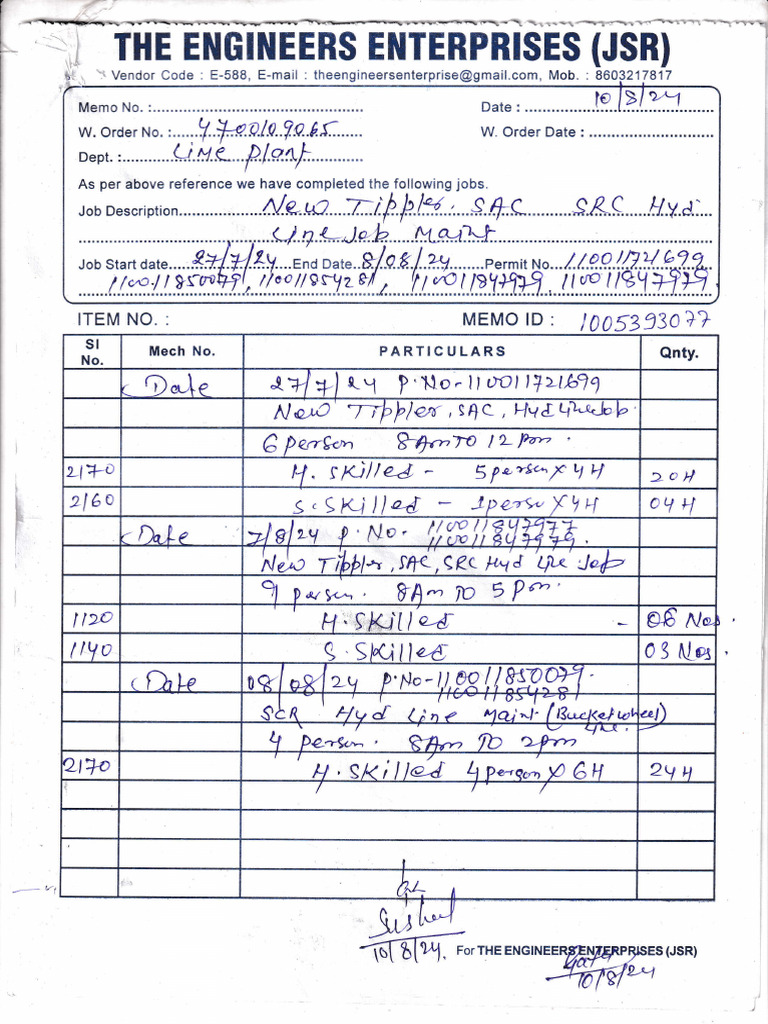 THE ENGINEERS ENTERPRISES (JSR)
Vendor Code : E-588, E-mail : theengineersenterprise@gmail.com, Mob. : 8603217817
Memo No. : Date : 10/8/24
W. Order No. : 4700109065 W. Order Date :
Dept. : Lime Plant
As per above reference we have completed the following jobs.
Job Description New Tippler. SAC SRC Hyd
Line Job Maint
Job Start date 27/7/24 End Date 8/08/24 Permit No. 110011721699
110011850079, 110011854281, 110011847979, 110011847979.
ITEM NO. : MEMO ID : 1005393077
Sl No. Mech No. PARTICULARS Qnty.
Date 27/7/24 P.No-110011721699
New Tippler, SAC, Hyd Line Job
6 person 8Am TO 12 pm.
2170 H. Skilled - 5 person X 4H 20H
2160 S. Skilled - 1 perso X 4H 04H
Date 7/8/24 P.No- 110011847977
110011847979.
New Tippler, SAC, SRC Hyd Line Job
9 person. 8Am TO 5 pm.
1120 H. Skilled - 06 Nos.
1140 S. Skilled 03 Nos.
Date 08/08/24 P.No-110011850079.
110011854281
SCR Hyd Line Maint (Bucket wheel)
Line.
4 person. 8Am TO 2pm
2170 H. Skilled 4 person X 6H 24H
Susheel
10/8/24.
For THE ENGINEERS ENTERPRISES (JSR)
10/8/24